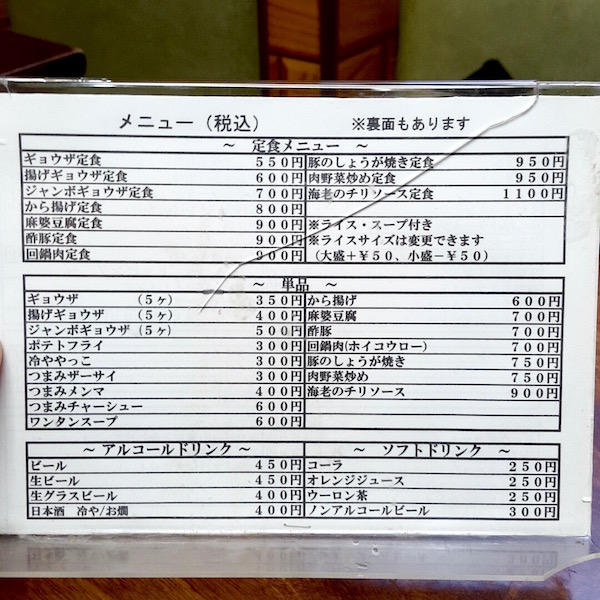 メニュー（税込）　　※裏面もあります
～　定食メニュー　～
ギョウザ定食　550円　豚のしょうが焼き定食　950円
揚げギョウザ定食　600円　肉野菜炒め定食　950円
ジャンボギョウザ定食　700円　海老のチリソース定食　1100円
から揚げ定食　800円
麻婆豆腐定食　900円　※ライス・スープ付き
酢豚定食　900円　※ライスサイズは変更できます
回鍋肉定食　900円　（大盛＋￥50、小盛－￥50）
～　単品　～
ギョウザ　（5ヶ）　350円　から揚げ　600円
揚げギョウザ　（5ヶ）　400円　麻婆豆腐　700円
ジャンボギョウザ（5ヶ）　500円　酢豚　700円
ポテトフライ　300円　回鍋肉(ホイコウロー)　700円
冷ややっこ　300円　豚のしょうが焼き　750円
つまみザーサイ　300円　肉野菜炒め　750円
つまみメンマ　400円　海老のチリソース　900円
つまみチャーシュー　600円
ワンタンスープ　600円
～ アルコールドリンク ～　～　ソフトドリンク　～
ビール　450円　コーラ　250円
生ビール　450円　オレンジジュース　250円
生グラスビール　400円　ウーロン茶　250円
日本酒　冷や/お燗　400円　ノンアルコールビール　300円